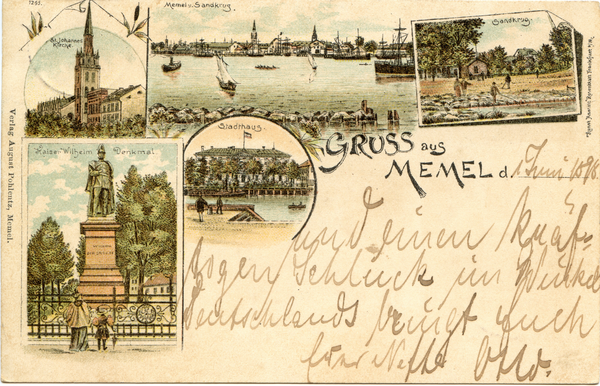 1295.
Memel v. Sandkrug.
St. Johannes
Kirche.
Sandkrug.
Stadthaus.
Kaiser Wilhelm Denkmal.
GRUSS aus
MEMEL d. 1 Juni 1898.
Verlag August Pohlentz, Memel.
und einen kräf-
Schluck im
Deutschlands bringt euch
Euer Neffe Otto.